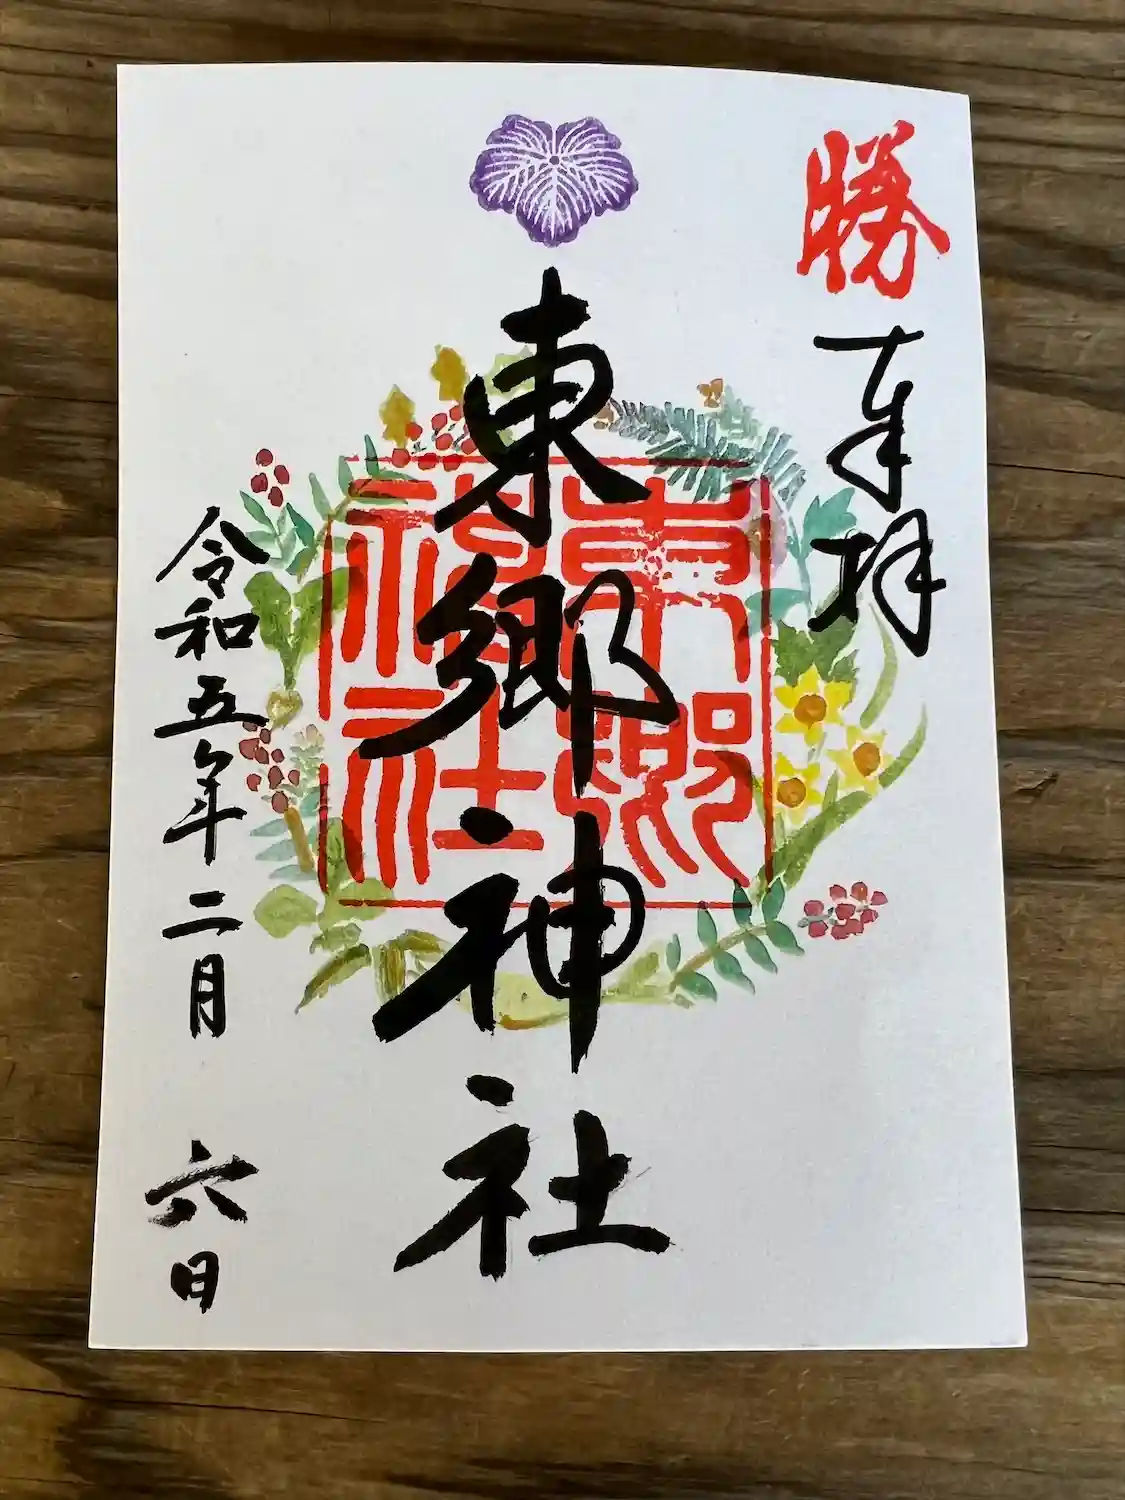 勝
奉拝
東郷神社
東郷神社
令和五年二月 六日